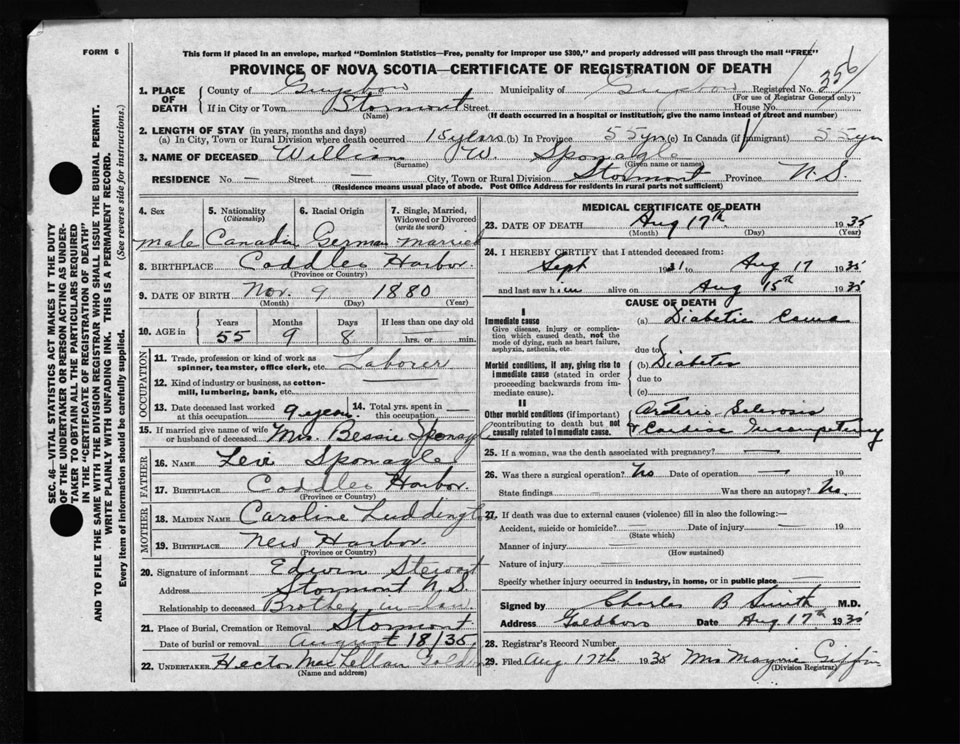 FORM 6
This form if placed in an envelope, marked "Dominion Statistics—Free, penalty for improper use $300," and properly addressed will pass through the mail "FREE"
PROVINCE OF NOVA SCOTIA—CERTIFICATE OF REGISTRATION OF DEATH
356
1. PLACE OF DEATH County of Guysboro Municipality of Guysboro Registered No.
(For use of Registrar General only)
If in City or Town Stormont Street House No.
(Name) (If death occurred in a hospital or institution, give the name instead of street and number)
2. LENGTH OF STAY (in years, months and days)
(a) In City, Town or Rural Division where death occurred 15 years (b) In Province 55 yrs (c) In Canada (if immigrant) 55 yrs
3. NAME OF DECEASED William W. Sponagle
(Surname) (Given name or names)
RESIDENCE No. — Street — City, Town or Rural Division Stormont Province N.S.
(Residence means usual place of abode. Post Office Address for residents in rural parts not sufficient)
4. Sex 5. Nationality (Citizenship) 6. Racial Origin 7. Single, Married, Widowed or Divorced (write the word)
Male Canadian German married
8. BIRTHPLACE Coddles Harbor.
(Province or Country)
9. DATE OF BIRTH Nov. 9 1880
(Month) (Day) (Year)
10. AGE in Years Months Days If less than one day old
55 9 8 hrs. or min.
OCCUPATION
11. Trade, profession or kind of work as spinner, teamster, office clerk, etc. Laborer
12. Kind of industry or business, as cotton-mill, lumbering, bank, etc.
13. Date deceased last worked at this occupation 9 years 14. Total yrs. spent in this occupation —
15. If married give name of wife or husband of deceased Mrs. Bessie Sponagle
FATHER
16. NAME Levi Sponagle
17. BIRTHPLACE Coddles Harbor.
(Province or Country)
MOTHER
18. MAIDEN NAME Caroline Luddington
19. BIRTHPLACE New Harbor.
(Province or Country)
20. Signature of informant Edwin Stewart
Address Stormont N.S.
Relationship to deceased Brother-in-law
21. Place of Burial, Cremation or Removal Stormont
Date of burial or removal August 18/35
22. UNDERTAKER Hector MacLellan
(Name and address)
MEDICAL CERTIFICATE OF DEATH
23. DATE OF DEATH Aug 17th 1935
(Month) (Day) (Year)
24. I HEREBY CERTIFY that I attended deceased from:
Sept 1931 to Aug 17 1935
and last saw him alive on Aug 15th 1935
CAUSE OF DEATH
I
Immediate cause (a) Diabetic Coma
Give disease, injury or complication which caused death, not the mode of dying, such as heart failure, asphyxia, asthenia, etc.
due to
Morbid conditions, if any, giving rise to immediate cause (stated in order proceeding backwards from immediate cause).
(b) Diabetes
due to
(c)
II
Other morbid conditions (if important) contributing to death but not causally related to immediate cause.
Arterio Sclerosis
& Cardiac Incompetency
25. If a woman, was the death associated with pregnancy? —
26. Was there a surgical operation? No Date of operation — 19
State findings — Was there an autopsy? No.
27. If death was due to external causes (violence) fill in also the following:—
Accident, suicide or homicide? — Date of injury — 19
(State which)
Manner of injury —
(How sustained)
Nature of injury —
Specify whether injury occurred in industry, in home, or in public place —
Signed by Charles B Smith M.D.
Address Goldboro Date Aug 17th 1935
28. Registrar's Record Number
29. Filed Aug 17th 1935 Mrs Giffin
(Division Registrar)
SEC. 46—VITAL STATISTICS ACT MAKES IT THE DUTY
OF THE UNDERTAKER OR PERSON ACTING AS UNDER-
TAKER TO OBTAIN ALL THE PARTICULARS REQUIRED
IN THE "CERTIFICATE OF REGISTRATION OF DEATH"
AND TO FILE THE SAME WITH THE DIVISION REGISTRAR WHO SHALL ISSUE THE BURIAL PERMIT.
WRITE PLAINLY WITH UNFADING INK. THIS IS A PERMANENT RECORD.
Every item of information should be carefully supplied. (See reverse side for instructions.)